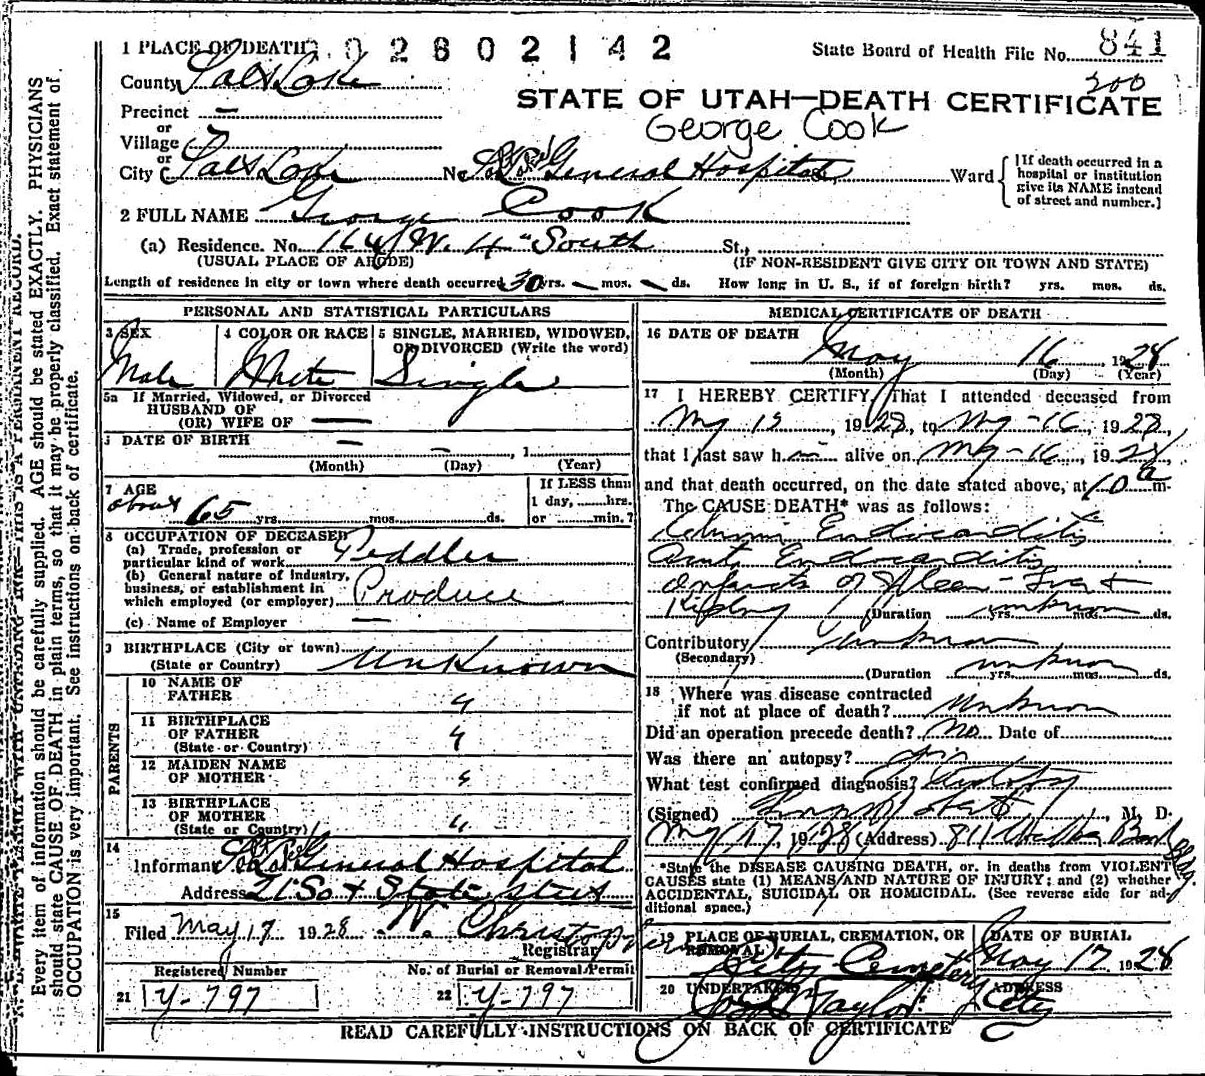 1 PLACE OF DEATH
2 8 0 2 1 4 2
State Board of Health File No. 841
200
County Salt Lake
STATE OF UTAH—DEATH CERTIFICATE
Precinct —
George Cook
or
Village
or
City Salt Lake No. General Hospital Ward
[If death occurred in a
hospital or institution
give its NAME instead
of street and number.]
2 FULL NAME George Cook
(a) Residence. No. 164 W. 4" South St.,
(USUAL PLACE OF ABODE) (IF NON-RESIDENT GIVE CITY OR TOWN AND STATE)
Length of residence in city or town where death occurred 30 yrs. — mos. — ds. How long in U. S., if of foreign birth? yrs. mos. ds.
PERSONAL AND STATISTICAL PARTICULARS
3 SEX
Male
4 COLOR OR RACE
White
5 SINGLE, MARRIED, WIDOWED,
OR DIVORCED (Write the word)
Single
5a If Married, Widowed, or Divorced
HUSBAND OF
(OR) WIFE OF —
DATE OF BIRTH — — , 1
(Month) (Day) (Year)
7 AGE
about 65 yrs. mos. ds.
If LESS than
1 day, hrs.
or min.?
8 OCCUPATION OF DECEASED
(a) Trade, profession or
particular kind of work Peddler
(b) General nature of industry,
business, or establishment in
which employed (or employer) Produce
(c) Name of Employer —
9 BIRTHPLACE (City or town)
(State or Country) Unknown
PARENTS
10 NAME OF
FATHER "
11 BIRTHPLACE
OF FATHER "
(State or Country)
12 MAIDEN NAME
OF MOTHER "
13 BIRTHPLACE
OF MOTHER
(State or Country) "
14
Informant General Hospital
Address 21 So & State street
15
Filed May 17 1928 W. Christopherson
Registrar
Registered Number No. of Burial or Removal Permit
21 Y-797 22 Y-797
MEDICAL CERTIFICATE OF DEATH
16 DATE OF DEATH
May 16, 1928
(Month) (Day) (Year)
17 I HEREBY CERTIFY, That I attended deceased from
My 15, 1928, to My-16, 1928,
that I last saw h im alive on My-16, 1928
and that death occurred, on the date stated above, at 10 a m.
The CAUSE DEATH* was as follows:
Chronic Endocarditis
Acute Endocarditis
Infarcts of Spleen - Liver &
Kidney (Duration yrs. unknown mos. ds.
Contributory Unknown
(Secondary)
(Duration unknown yrs. mos. ds.
18 Where was disease contracted
if not at place of death? Unknown
Did an operation precede death? No Date of
Was there an autopsy? Yes
What test confirmed diagnosis? Autopsy
(Signed) , M. D.
My 17, 1928 (Address) 811 Walker Bank Bldg.
*State the DISEASE CAUSING DEATH, or, in deaths from VIOLENT
CAUSES state (1) MEANS AND NATURE OF INJURY; and (2) whether
ACCIDENTAL, SUICIDAL OR HOMICIDAL. (See reverse side for ad
ditional space.)
19 PLACE OF BURIAL, CREMATION, OR
REMOVAL
City Cemetery
DATE OF BURIAL
May 17 1928
20 UNDERTAKER
Taylor
ADDRESS
City
READ CAREFULLY INSTRUCTIONS ON BACK OF CERTIFICATE
Every item of information should be carefully supplied. AGE should be stated EXACTLY. PHYSICIANS
should state CAUSE OF DEATH in plain terms, so that it may be properly classified. Exact statement of
OCCUPATION is very important. See instructions on back of certificate.